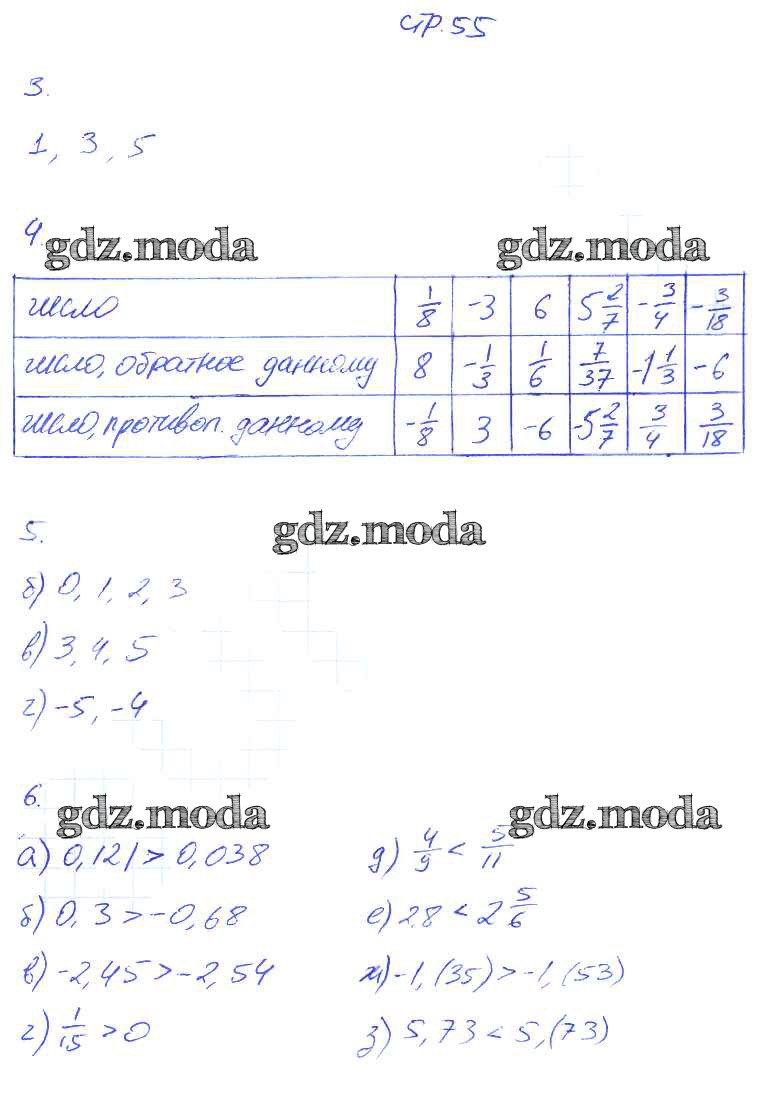 стр. 55
3.
1, 3, 5
4.
gdz.moda gdz.moda
число 1/8 -3 6 5 2/7 -3/4 -3/18
число, обратное данному 8 -1/3 1/6 7/37 -1 1/3 -6
число, противоп. данному -1/8 3 -6 -5 2/7 3/4 3/18
5.
gdz.moda
б) 0, 1, 2, 3
в) 3, 4, 5
г) -5, -4
6.
gdz.moda gdz.moda
а) 0,121 > 0,038
б) 0,3 > -0,68
в) -2,45 > -2,54
г) 1/15 > 0
д) 4/9 < 5/11
е) 2.8 < 2 5/6
ж) -1,(35) > -1,(53)
з) 5,73 < 5,(73)